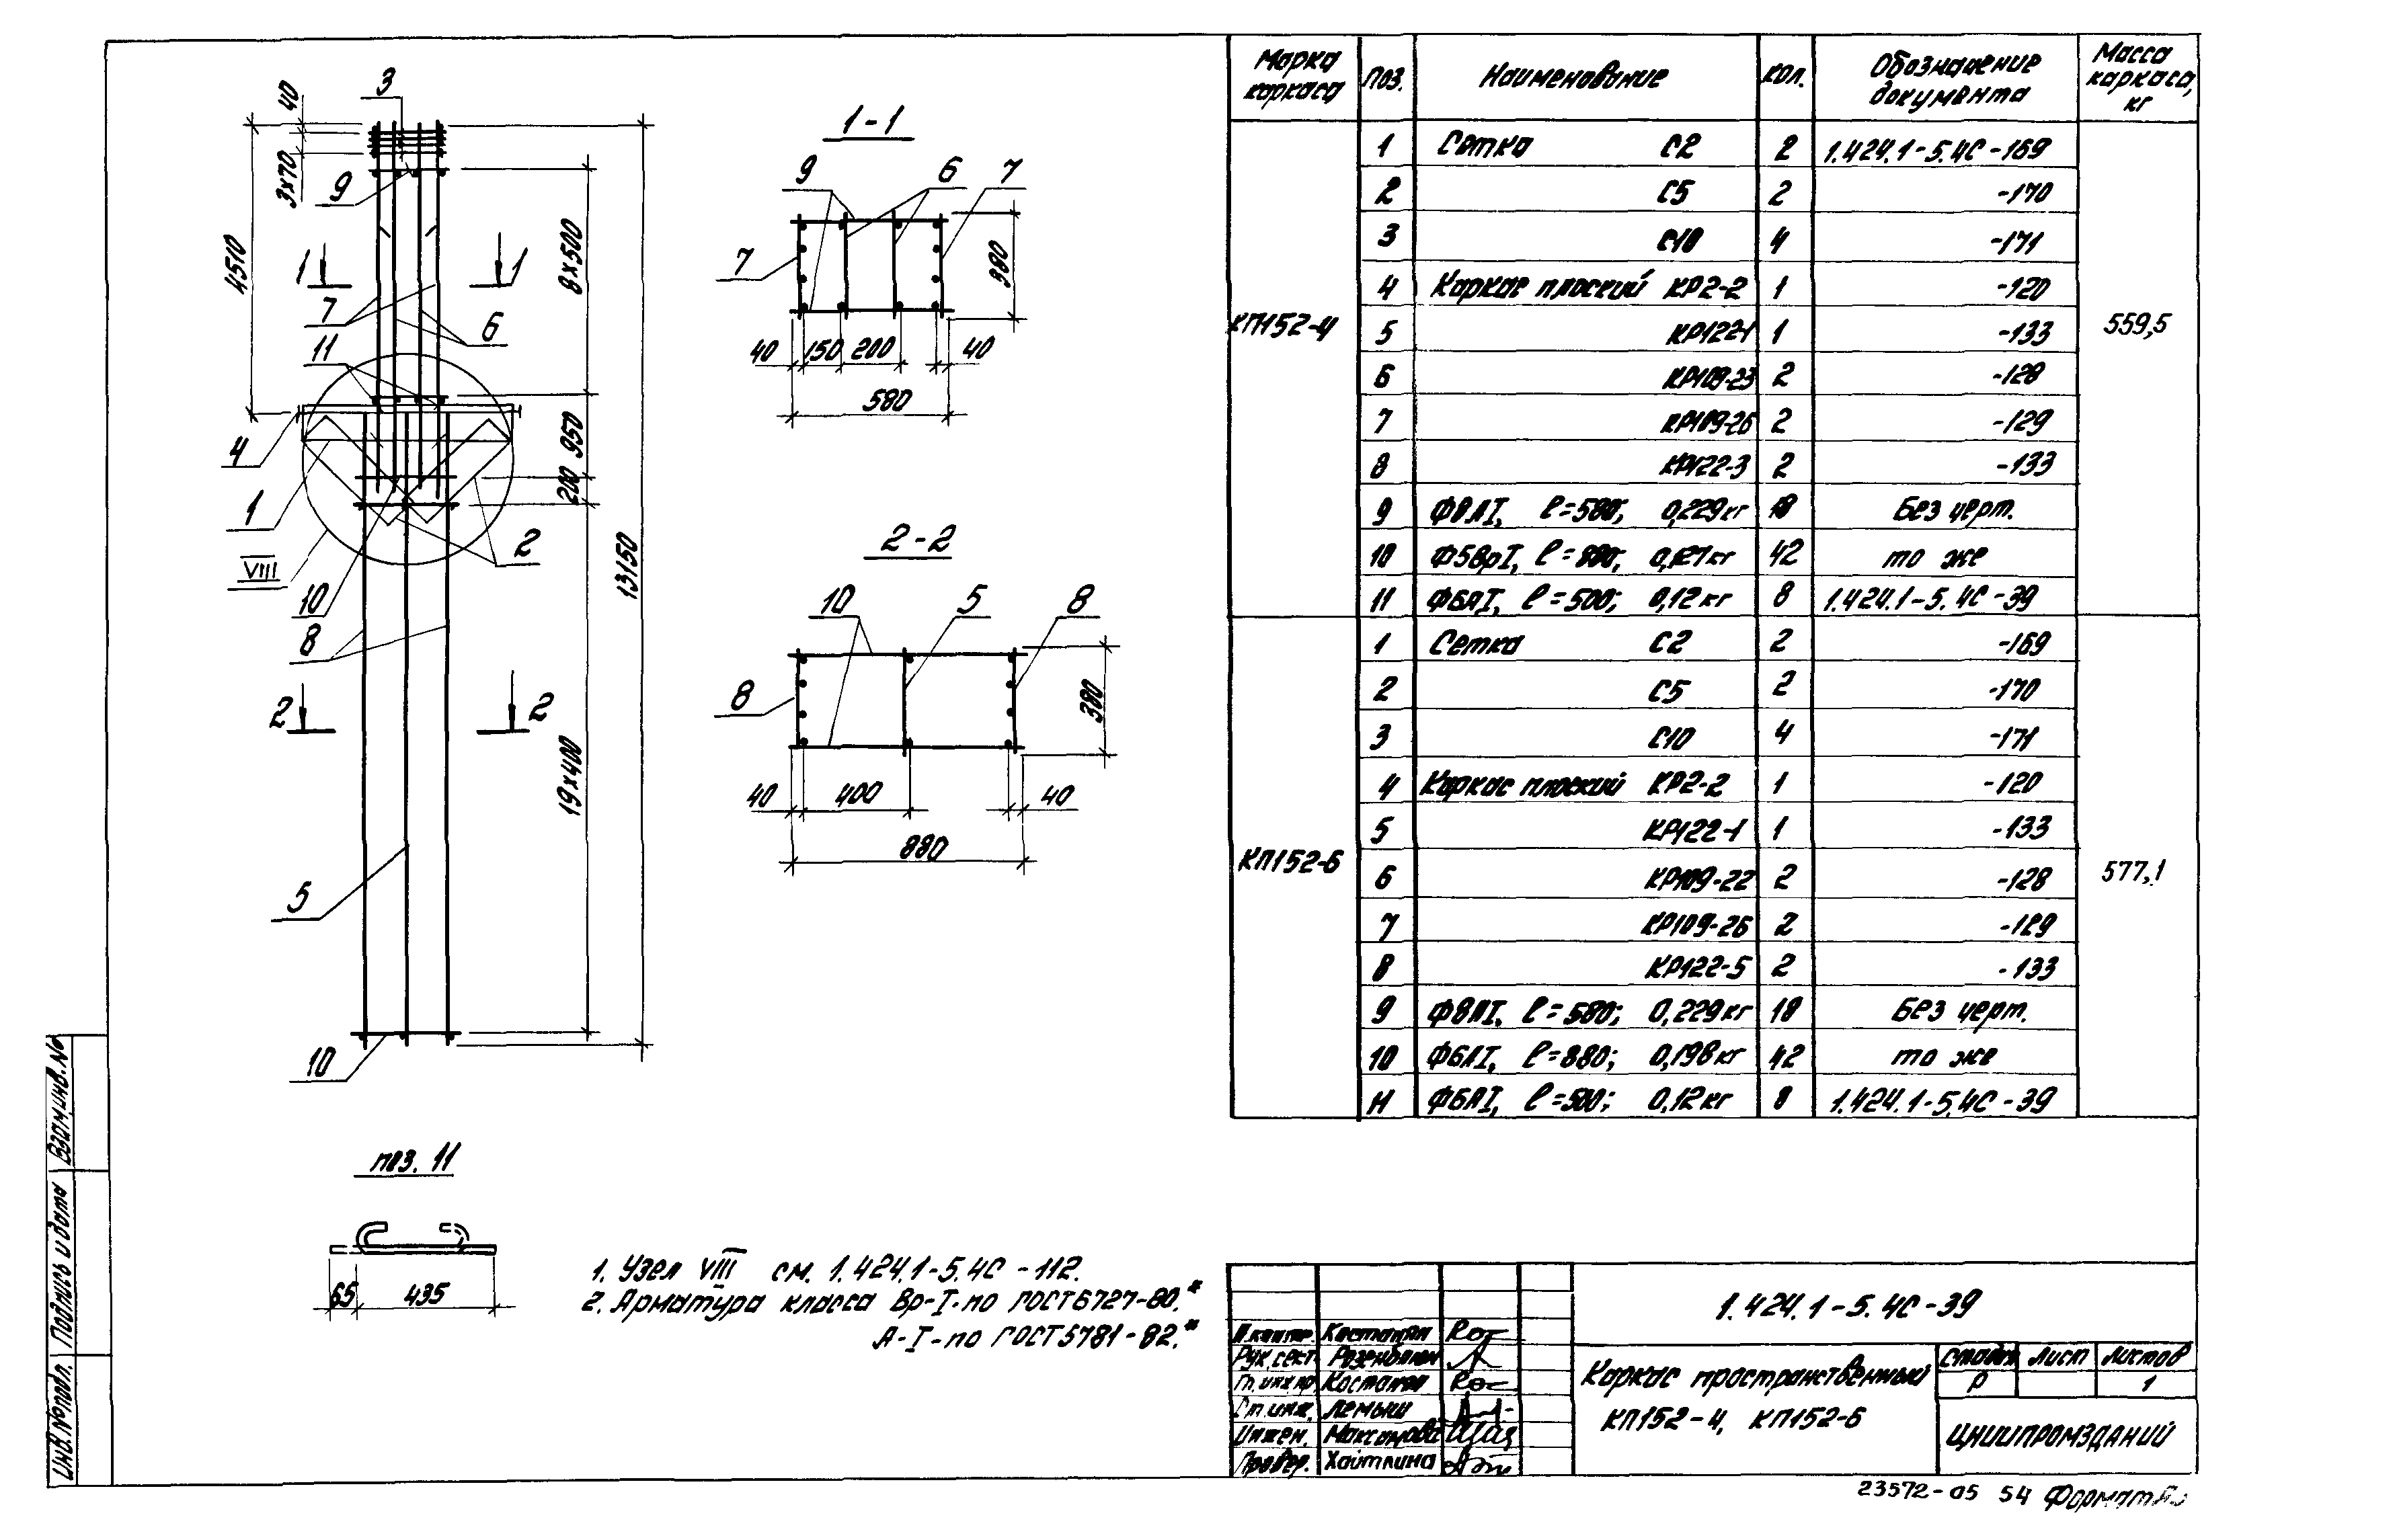 40
3
4510
3х70
9
1
1
7
6
11
8х500
950
200
4
1
VIII
2
10
8
13150
2
2
19х400
5
10
1-1
9
6
7
7
380
40
150
200
40
580
2-2
10
5
8
8
380
40
400
40
880
поз. 11
65
435
1. Узел VIII см. 1.424.1-5.4С-112.
2. Арматура класса Вр-I-по ГОСТ 6727-80.*
А-I-по ГОСТ 5781-82.*
Марка каркаса Поз. Наименование Кол. Обозначение документа Масса каркаса, кг
КП152-4 559,5
1 Сетка С2 2 1.424.1-5.4С-169
2 С5 2 -170
3 С10 4 -171
4 Каркас плоский КР2-2 1 -120
5 КР122-1 1 -133
6 КР109-23 2 -128
7 КР109-26 2 -129
8 КР122-3 2 -133
9 Ф8АI, ℓ=580; 0,229кг 18 Без черт.
10 Ф5ВрI, ℓ=880; 0,127кг 42 то же
11 Ф6АI, ℓ=500; 0,12кг 8 1.424.1-5.4С-39
КП152-6 577,1
1 Сетка С2 2 -169
2 С5 2 -170
3 С10 4 -171
4 Каркас плоский КР2-2 1 -120
5 КР122-1 1 -133
6 КР109-22 2 -128
7 КР109-26 2 -129
8 КР122-5 2 -133
9 Ф8АI, ℓ=580; 0,229кг 18 Без черт.
10 Ф6АI, ℓ=880; 0,198кг 42 то же
11 Ф6АI, ℓ=500; 0,12кг 8 1.424.1-5.4С-39
Взам.инв.№
Подпись и дата
Инв.№ подл.
Н.контр. Костанян
Рук.сект. Розенблюм
Гл.инж.пр Костанян
Ст.инж. Лемыш
Инжен. Максимова
Провер. Хайткина
1.424.1-5.4С-39
Каркас пространственный
КП152-4, КП152-6
Стадия Лист Листов
Р 1
ЦНИИПРОМЗДАНИЙ
23572-05 54 Формат А3